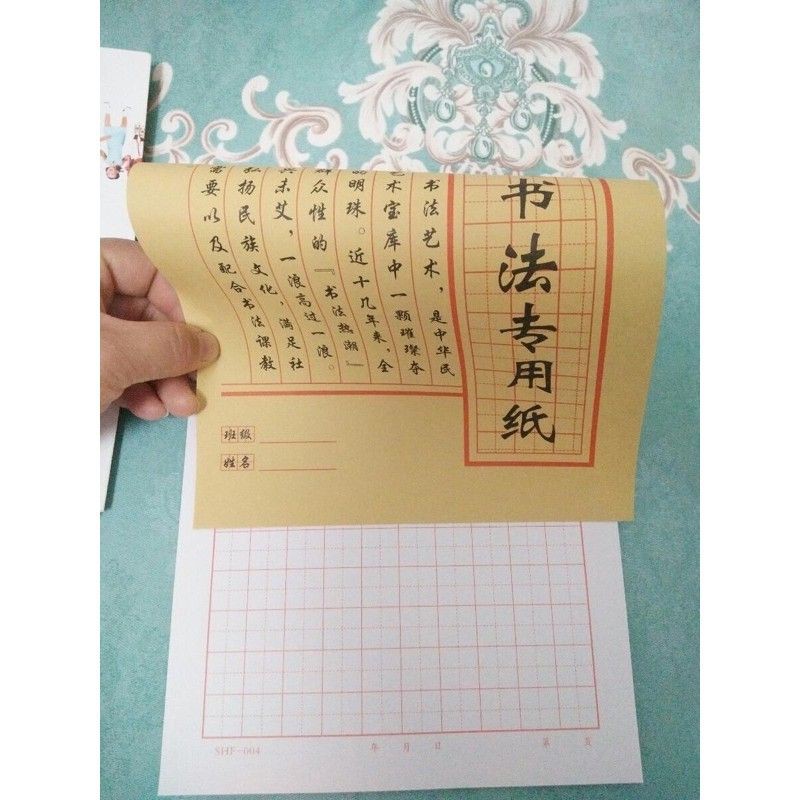 书法专用纸
书法艺术，是中华民
艺术宝库中一颗璀璨夺
的明珠。近十几年来，全
群众性的『书法热潮』
兴未艾，一浪高过一浪。
弘扬民族文化，满足社
需要以及配合书法课教
班级
姓名
SHF-004 年 月 日 第 页